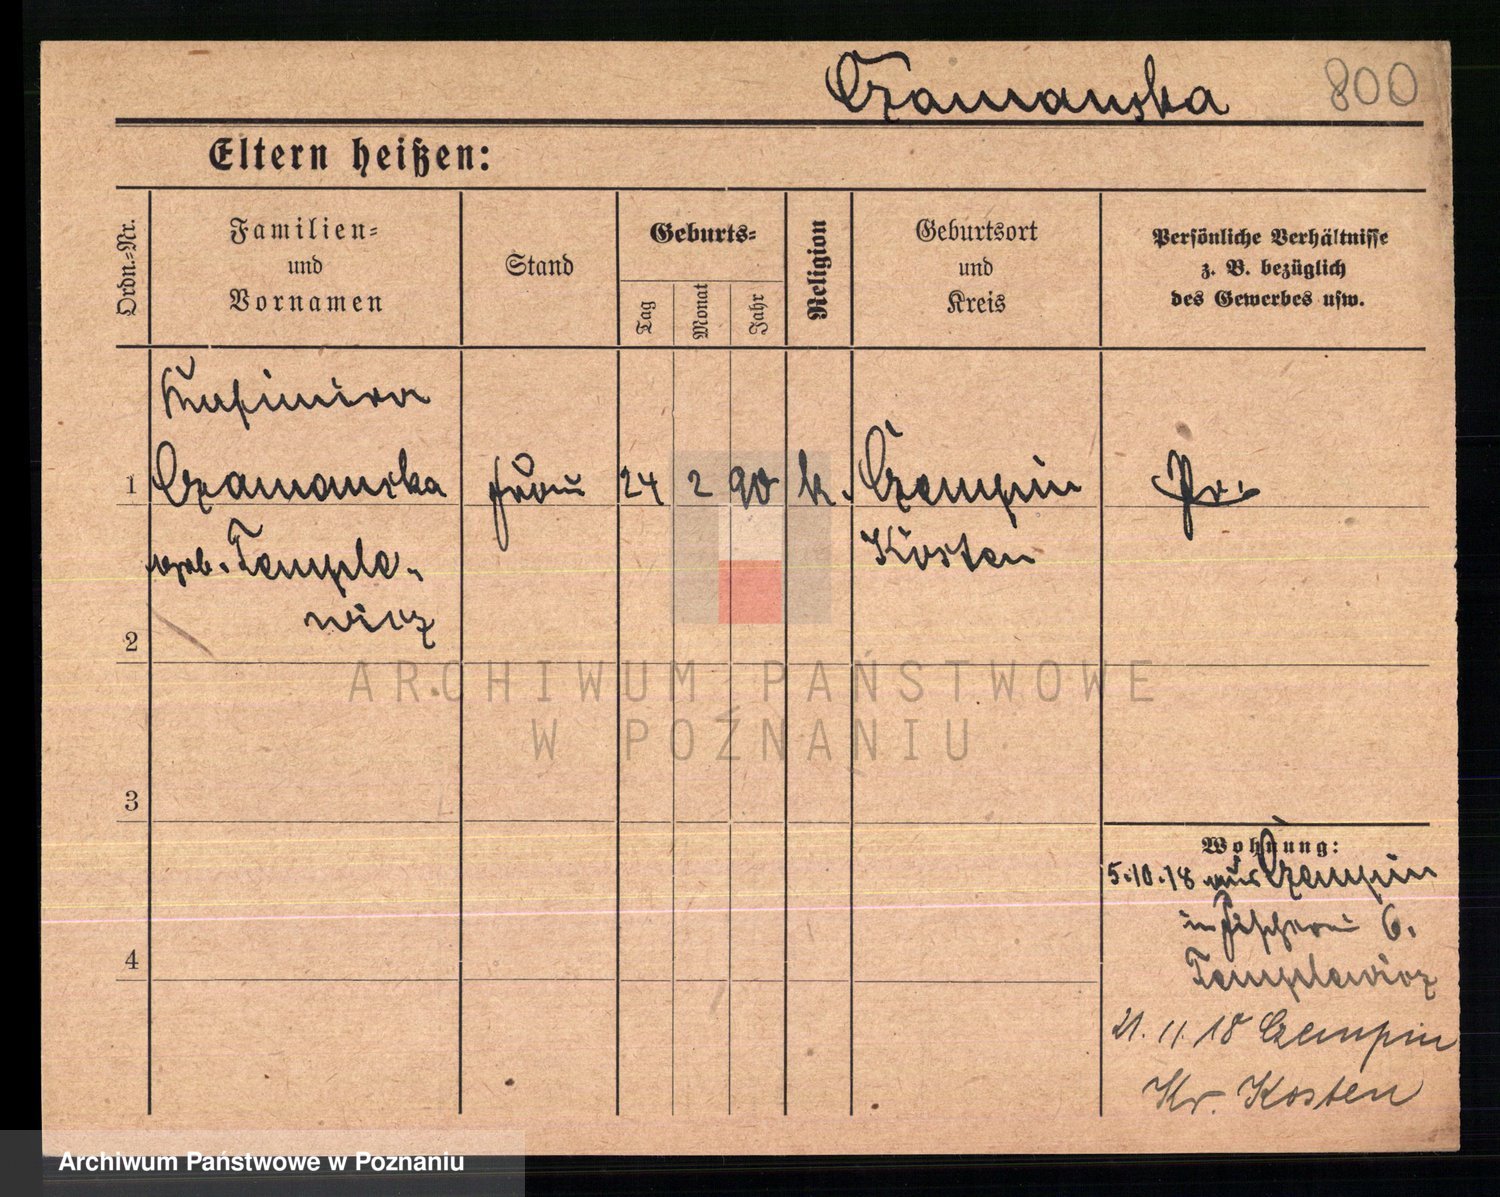 Czamanska 800
Eltern heißen:
Ordn.-Nr.
Familien-
und
Vornamen
Stand
Geburts-
Tag
Monat
Jahr
Religion
Geburtsort
und
Kreis
Persönliche Verhältnisse
z. B. bezüglich
des Gewerbes usw.
Kasimira
1 Czamanska Frau 24 2 90 k. Czempin Pr.
geb. Temple- Kosten
wicz
2
ARCHIWUM PAŃSTWOWE
W POZNANIU
3
Wohnung:
5.10.18 aus Czempin
in Fischerei 6.
4 Templewicz
21.11.18 Czempin
Kr. Kosten
Archiwum Państwowe w Poznaniu